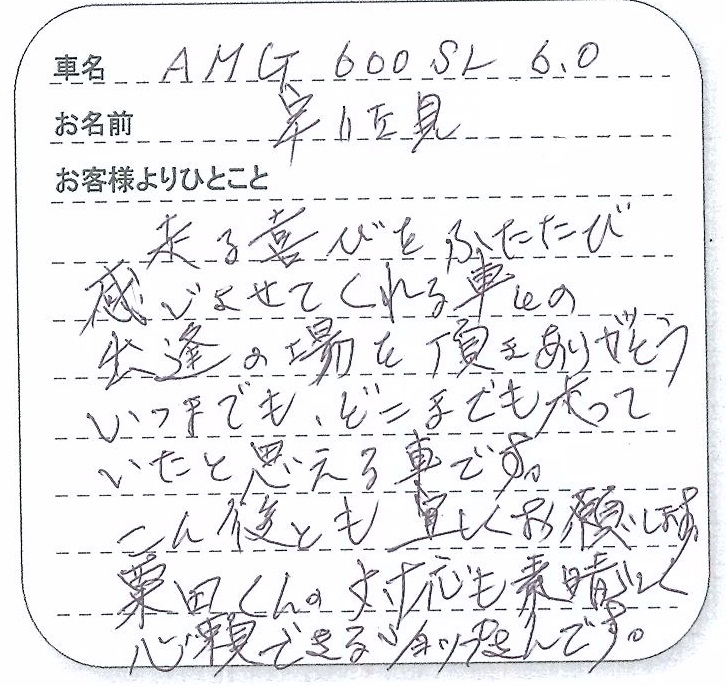 車名 AMG 600SL 6.0
お名前 岸 佐見
お客様よりひとこと
走る喜びをふたたび
感じさせてくれる車との
出逢の場を頂きありがとう
いつまでも、どこまでも走って
いたと思える車です。
こん後とも宜しくお願いします
栗田くんの対応も素晴しく
心頼できるショップさんです。